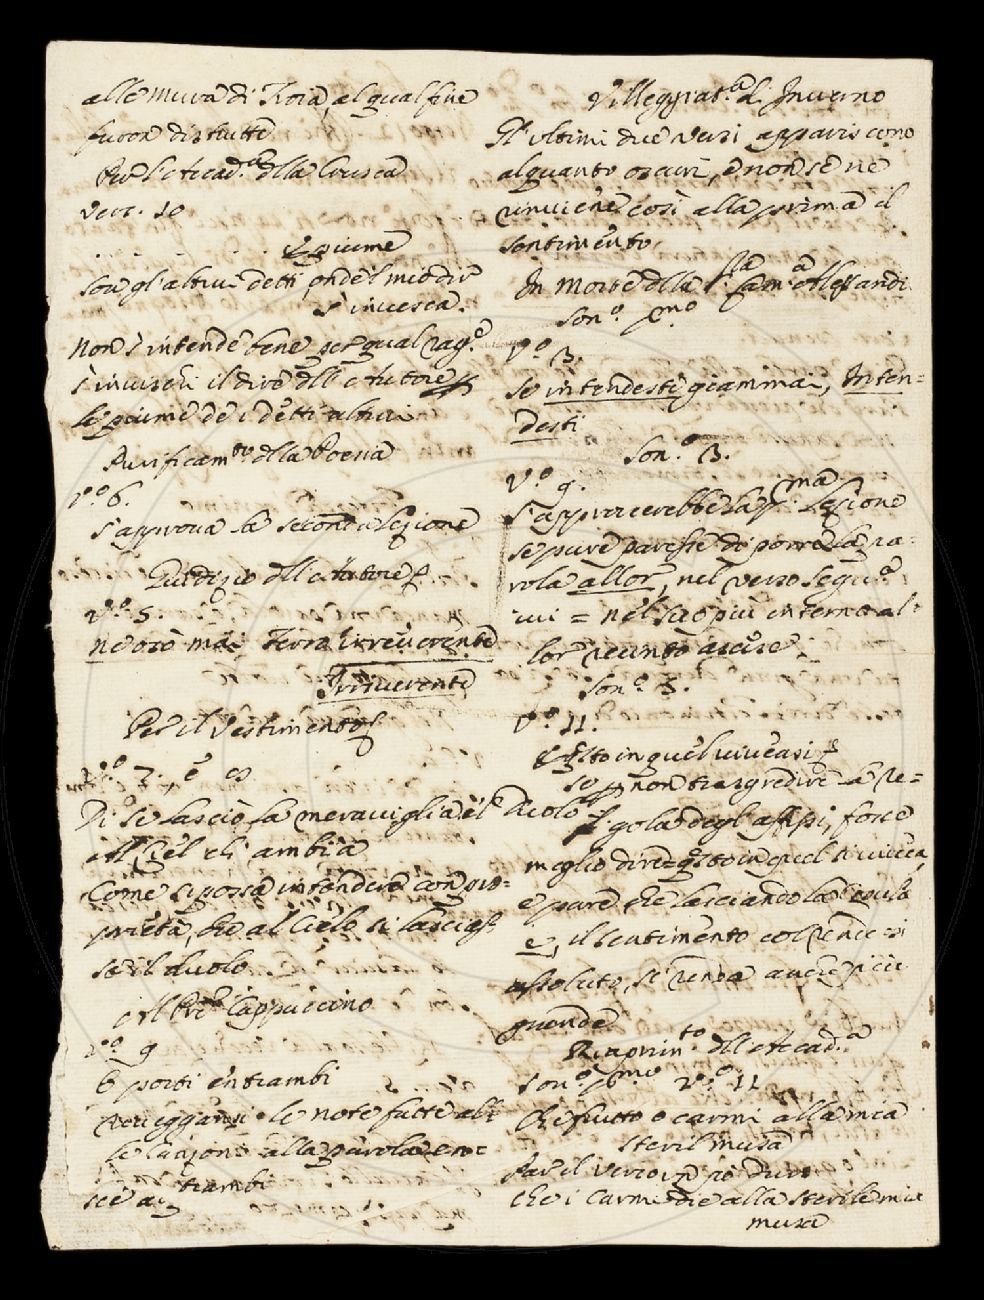 alle mura di Troia, al qual fine
furon distrutte
Per l'Accad.a della Crusca
vers. 10
. . . . . . . le piume
son gl'altrui detti, onde'l mio dir
s'invesca.
Non s'intende bene per qual rag.e
s'invischi il dire dell'Autore
le piume de i detti altrui
Purificam.to della Poesia
v.o 6.
s'approva la seconda lezione
Giudizio dell'Autore
v.o 5.
ne osò mai Terra irreverente
Irriverente
Per il Vestimento
v.o 7. e 8
Di se lasciò la meraviglia e'l duolo
Al Ciel
Come si possa intendere con pro=
prietà, che al Cielo si lascias=
se il duolo
Al Pre Cappuccino
v.o 9
E porti entrambi
Veggansi le note fatte al
alla parola en=
trambi
Villeggiat.a d'Inverno
Gl'ultimi dieci versi appariscono
alquanto oscuri, e non se ne
rinviene così alla prima il
sentimento,
In Morte della Sig.ra Alessandri
Son.o p.mo
v.o 3.
se intendesti giammai, Inten=
desti
Son.o 3.
v.o 9.
s'approverebbe la p.ma Lezione
se pure paresse di porre la pa=
rola allor, nel verso segu.e
ivi = nel sen più interno al=
lor
Son.o 5.
v.o 11.
E sto in quel viveasi
se p non trasgredire la Re=
gola degl'affissi, forse
meglio dire = e sto in quel si vivea
e pare che lasciando la copula
e, il sentimento col rendersi
assoluto, si renda anche più
grande
Riaprim.to dell'Accad.a
Son.o p.mo v.o 11
Che frutto o carmi alla mia
steril musa
Far il verso un pò duro
che i Carmi die alla sterile mia
musa